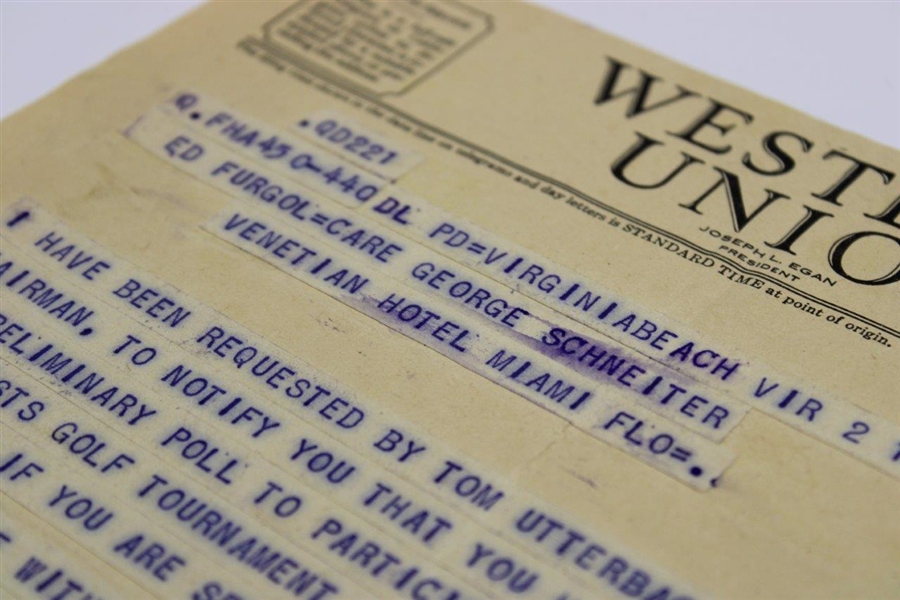 WESTE
UNIO
JOSEPH L. EGAN
PRESIDENT
telegrams and day letters is STANDARD TIME at point of origin.
.QD221
Q.FHA450-440 DL PD=VIRGINIABEACH VIR 2
ED FURGOL=CARE GEORGE SCHNEITER
VENETIAN HOTEL MIAMI FLO=.
I HAVE BEEN REQUESTED BY TOM UTTERBA
AIRMAN, TO NOTIFY YOU THAT YOU
RELIMINARY POLL TO PARTICI
STS GOLF TOURNAMENT
IF YOU ARE SE
WITH